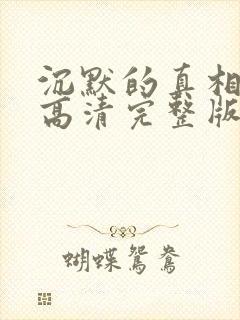 沉默的真相
高清完整版
蝴蝶鸳鸯